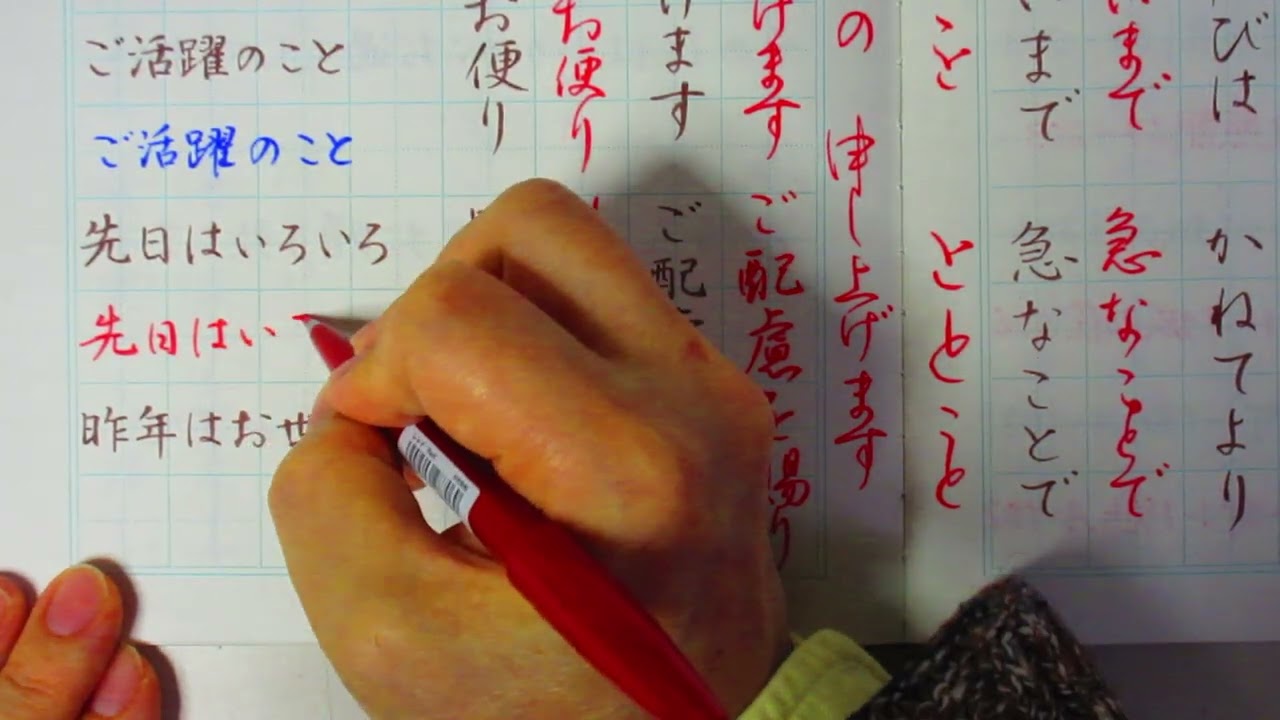 びは かねてより
まで 急なことで
まで 急なことで
こと とと こと
の 申し上げます
げます ご配慮を賜り
けます ご配
お便り
お便り
ご活躍のこと
ご活躍のこと
先日はいろいろ
先日はい
昨年はおせ